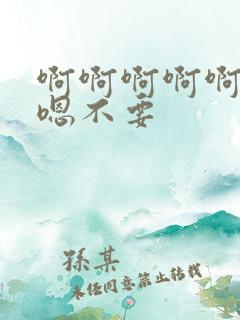 啊啊啊啊啊
嗯不要
孫某
未经同意禁止转载